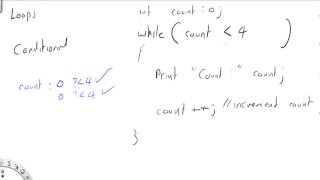 Loops
Conditional
count : 0 ?<4 ✓
0 ?<4 ✓
int count : 0;
while ( count < 4 )
{
Print "Count : " count;
count ++; //increment count
}